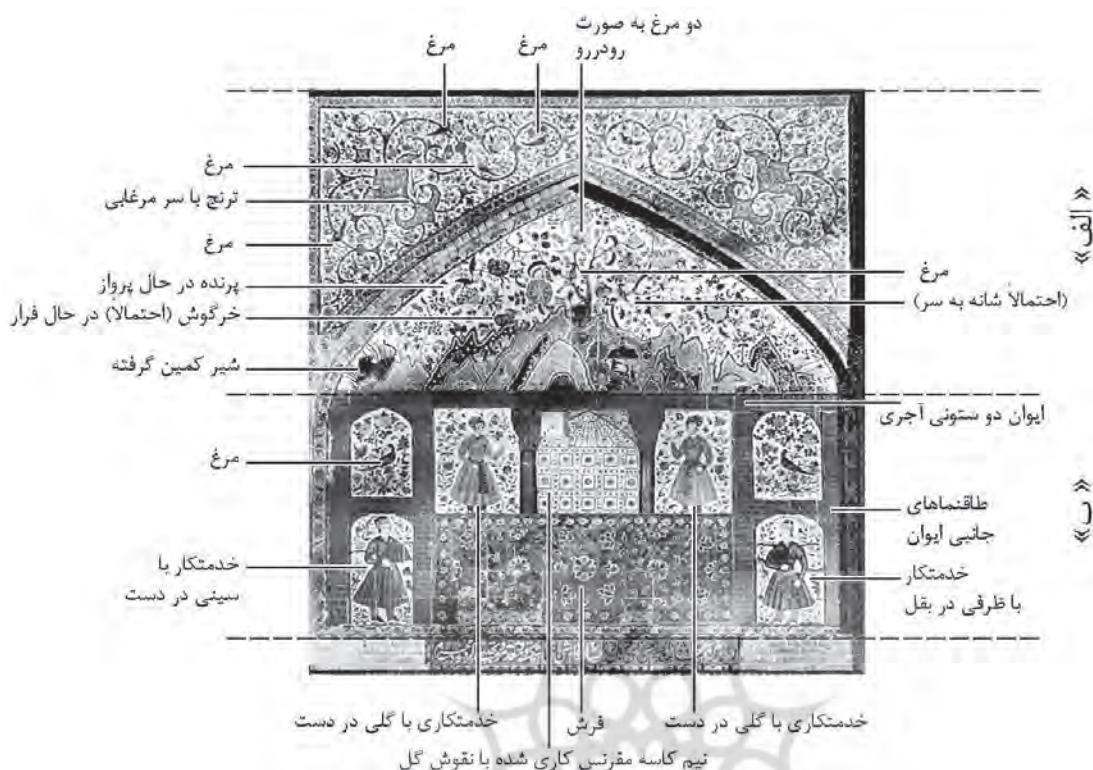 دو مرغ به صورت
رودررو
مرغ
مرغ
مرغ
ترنج با سر مرغابی
مرغ
پرنده در حال پرواز
خرگوش (احتمالاً) در حال فرار
شیر کمین گرفته
مرغ
(احتمالاً شانه به سر)
«الف»
ایوان دو ستونی آجری
مرغ
طاقنماهای
جانبی ایوان
«ب»
خدمتکار با
سینی در دست
خدمتکار
با ظرفی در بغل
خدمتکاری با گلی در دست
فرش
خدمتکاری با گلی در دست
نیم کاسه مقرنس کاری شده با نقوش گل